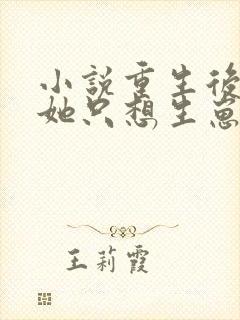 小說重生後
她只想生崽
王莉霞